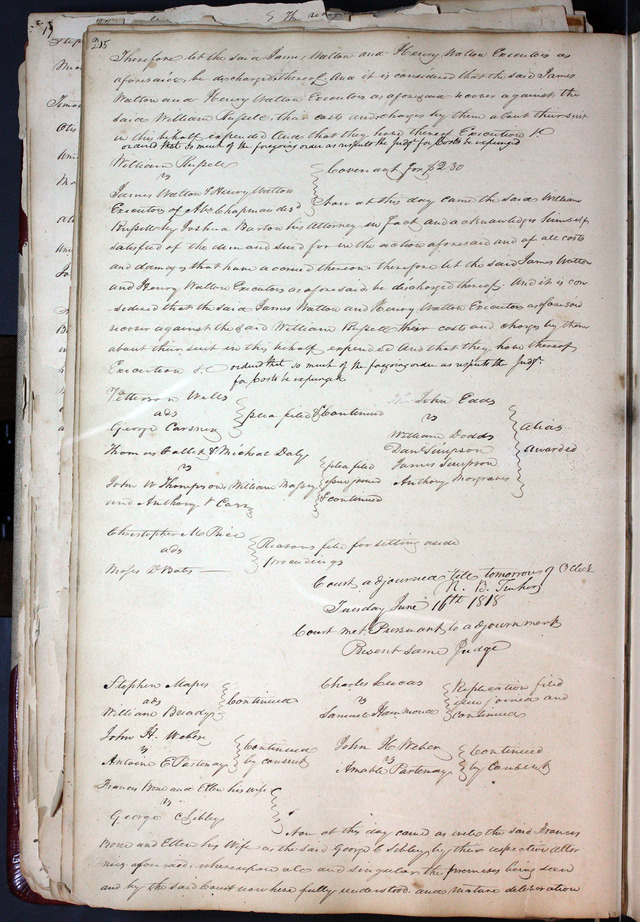 215
Therefore let the said James Walton and Henry Walton Executors as
aforesaid, be discharged thereof. And it is considered that the said James
Walton and Henry Walton Executors as aforesaid recover against the
said William Russell their costs and charges by them about their suit
in this behalf expended And that they have thereof Execution &c
ordered that so much of the foregoing order as respects the Judgt. for Costs be expunged
William Russell
vs
Covenant for $230
James Walton & Henry Walton
Executors of Abr. Chapman decd
Now at this day came the said William
Russell by Joshua Barton his Attorney in fact and acknowledges himself
satisfied of the demand sued for in the action aforesaid and of all costs
and damages that have accrued thereon therefore let the said James Walton
and Henry Walton Executors as aforesaid be discharged thereof. And it is con-
sidered that the said James Walton and Henry Walton Executors as aforesaid
recover against the said William Russell their costs and charges by them
about their suit in this behalf expended And that they have thereof
Execution &c ordered that so much of the foregoing order as respects the Judgt.
for Costs be expunged
Petterson Wells
ads
George Carsner
plea filed & Continued
John Eads
vs
William Dodds
Danl Simpson
James Simpson
Anthony Musgraves
Alias
awarded
Thomas Catlet & Michael Daly
vs
John W Thompson, William Massey
and Anthony V Carr
plea filed
issue joined
& continued
Christopher M Price
ads
Moses D. Bates
Reasons filed for setting aside
proceedings
Court adjourned till tomorrow 9 OClock
N. B. Tucker
Tuesday June 16th 1818
Court met Pursuant to adjournment
Present same Judge
Stephen Mapes
ads
William
Continued
Charles Lucas
vs
Samuel Hammond
Replication filed
issue joined and
continued
John H. Weber
vs
Antoine E Partenay
Continued
by consent
John H. Weber
vs
Amable Partenay
Continued
by Consent
Francis Bone and Ellen his wife
vs
George C Sibley
Now at this day came as well the said Francis
Bone and Ellen his Wife as the said George C Sibley, by their respective attor
nies aforesaid, whereupon all and singular the premises being seen
and by the said Court now here fully understood and mature deliberation